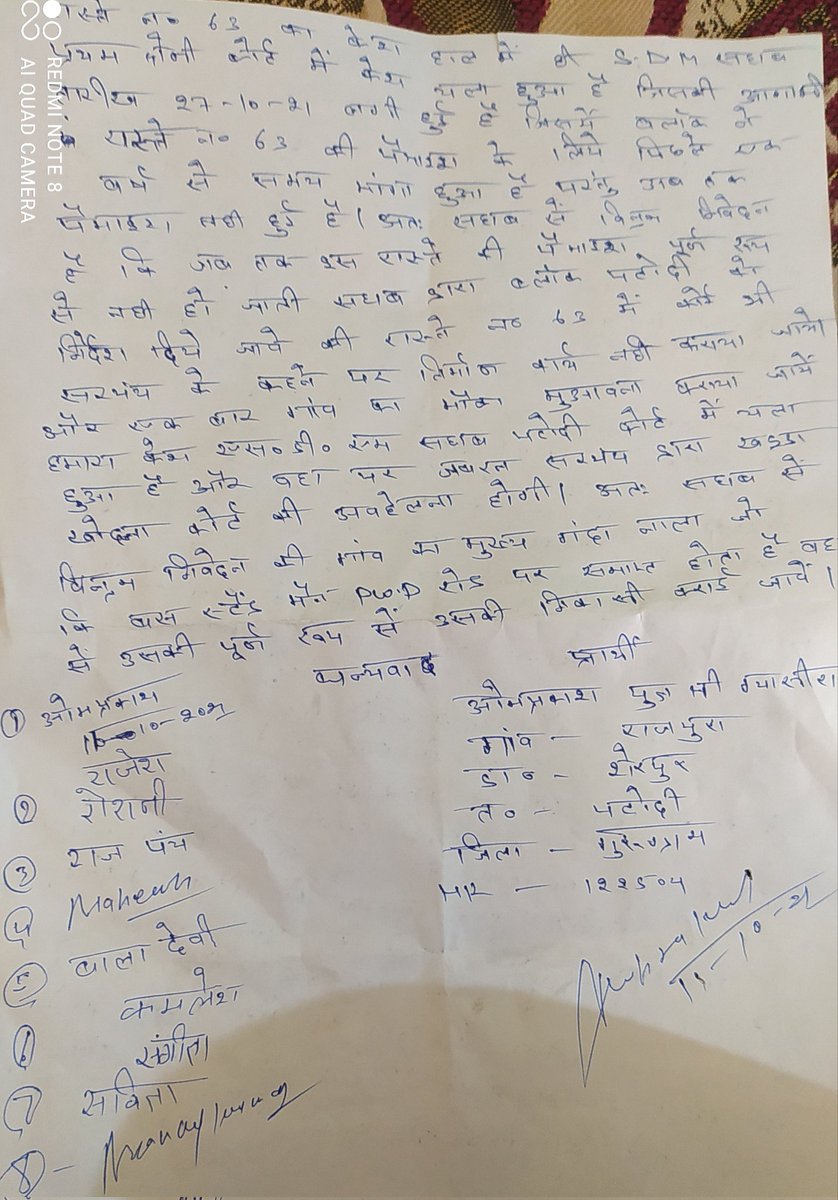 रास्ते न० 63 का केश हाल में ही S.D.M साहब
प्रथम श्रेणी कोर्ट में केश चला हुआ है जिसकी आगामी
तारीख 27-10-21 लगी हुई है जिसमें ब्लॉक ने
रास्ते न० 63 की पैमाइश के लिये पिछले एक
वर्ष से समय मांगा हुआ है परंतु अब तक
पैमाइश नही हुई है। अतः साहब से विनम्र निवेदन
है कि जब तक इस रास्ते की पैमाइश पूर्ण रूप
से नही हो जाती साहब द्वारा ब्लॉक पटौदी को
निर्देश दिये जाये की रास्ते न० 63 में कोई भी
सरपंच के कहने पर निर्माण कार्य नही कराया जाये
और एक बार गांव का मौका मुआयना कराया जाये
हमारा केश एस०डी० एम साहब पटोदी कोर्ट में चला
हुआ है और वहा पर जबरन सरपंच द्वारा खड्डा
खोदना कोर्ट की अवहेलना होगी। अतः साहब से
विनम्र निवेदन की गांव का मुख्य गंदा नाला जो
कि बस स्टैंड मेन P.W.D रोड पर समाप्त होता है वह
से उसकी पूर्ण रूप से उसकी निकासी कराई जाये।
धन्यवाद
प्रार्थी
ओमप्रकाश पुत्र श्री
गांव - राजपुरा
डा० - शेरपुर
त० - पटोदी
जिला - गुरुग्राम
- 122504
11-10-21
① ओमप्रकाश
10-2021
राजेश
② रोशनी
③ राज पंच
④ Mahesh
⑤ बाला देवी
कमलेश
⑥ संगीता
⑦ सविता
8-
REDMI NOTE 8
AI QUAD CAMERA